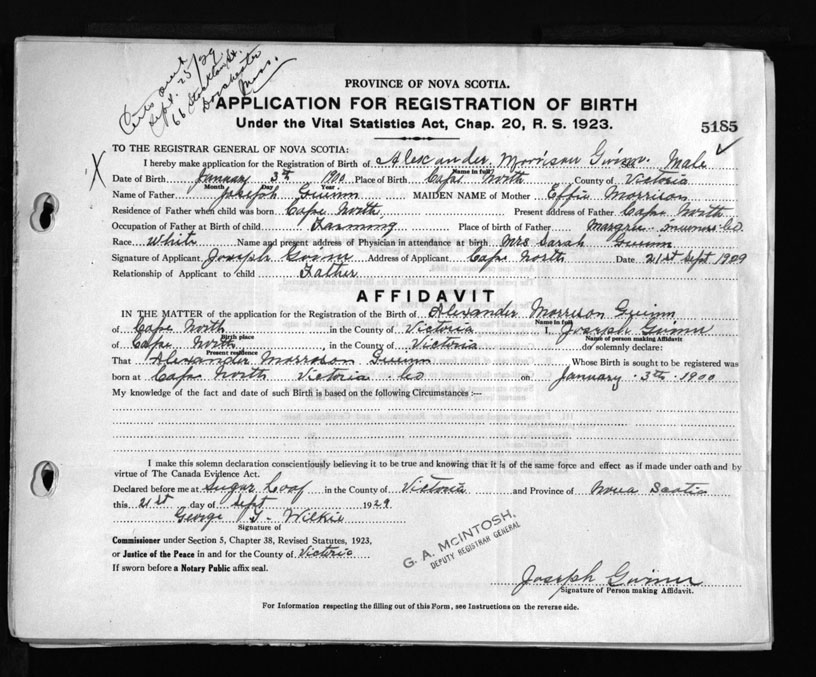 Certs sent
Sept. 25/29
66 Stockton St.
Dorchester
Mass.
PROVINCE OF NOVA SCOTIA.
APPLICATION FOR REGISTRATION OF BIRTH
Under the Vital Statistics Act, Chap. 20, R. S. 1923.
5185
TO THE REGISTRAR GENERAL OF NOVA SCOTIA:
X I hereby make application for the Registration of Birth of Alexander Morrison Guinn. Male ✓
Name in full Sex
Date of Birth January 3th 1900 Place of Birth Cape North County of Victoria
Month Day Year
Name of Father Joseph Guinn MAIDEN NAME of Mother Effie Morrison
Residence of Father when child was born Cape North, Present address of Father Cape North
Occupation of Father at Birth of child Farming Place of birth of Father Margree Inverness Co.
Race White Name and present address of Physician in attendance at birth Mrs Sarah Guinn
Signature of Applicant Joseph Guinn Address of Applicant Cape North Date 21st Sept 1929
Relationship of Applicant to child Father
AFFIDAVIT
IN THE MATTER of the application for the Registration of the Birth of Alexander Morrison Guinn
Name in full
of Cape North in the County of Victoria I, Joseph Guinn
Birth place Name of person making Affidavit
of Cape North, in the County of Victoria do solemnly declare:
Present residence
That Alexander Morrison Guinn Whose Birth is sought to be registered was
born at Cape North Victoria Co on January 3th 1900
My knowledge of the fact and date of such Birth is based on the following Circumstances :—
I make this solemn declaration conscientiously believing it to be true and knowing that it is of the same force and effect as if made under oath and by
virtue of The Canada Evidence Act.
Declared before me at Sugar Loaf in the County of Victoria and Province of Nova Scotia
this 21st day of Sept 1929
George T. Wilkie
Signature of
Commissioner under Section 5, Chapter 38, Revised Statutes, 1923,
or Justice of the Peace in and for the County of Victoria
If sworn before a Notary Public affix seal.
G. A. McINTOSH,
DEPUTY REGISTRAR GENERAL
Joseph Guinn
Signature of Person making Affidavit.
For Information respecting the filling out of this Form, see Instructions on the reverse side.